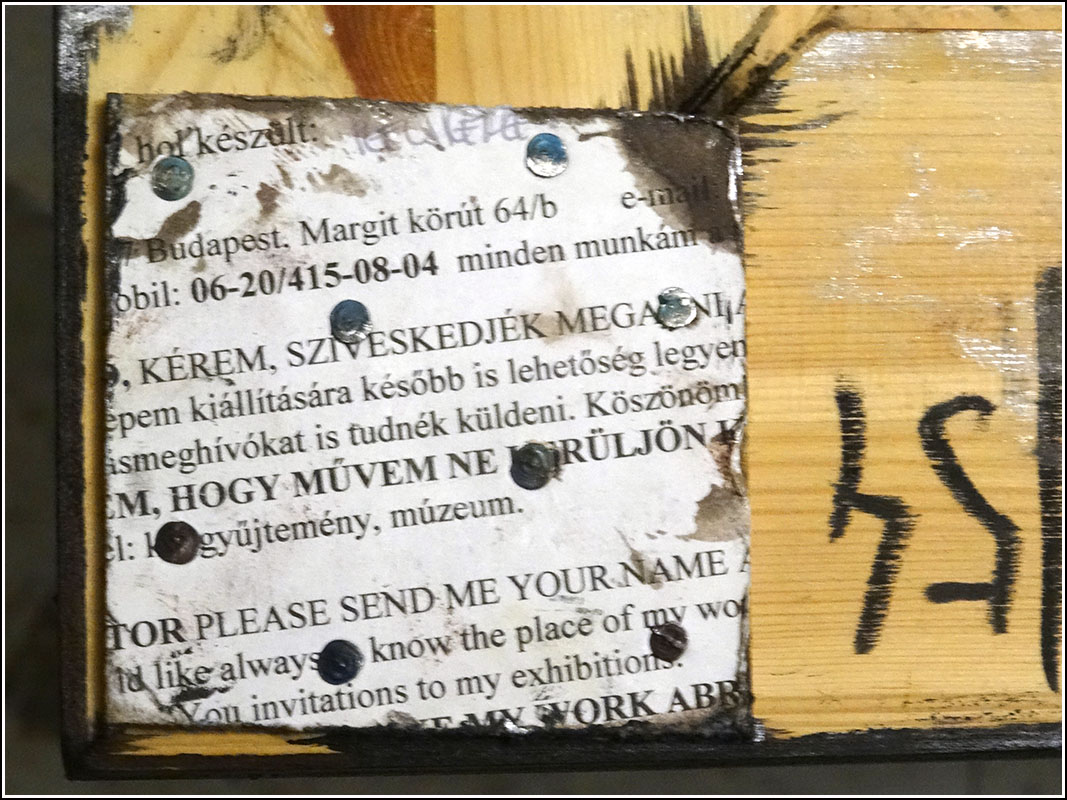 hol készült:
Budapest, Margit körút 64/b e-mail:
obil: 06-20/415-08-04 minden munkám a
, KÉREM, SZÍVESKEDJÉK MEGA NI A
épem kiállítására később is lehetőség legyen
ásmeghívókat is tudnék küldeni. Köszönöm
EM, HOGY MŰVEM NE KERÜLJÖN K
el: k gyűjtemény, múzeum.
TOR PLEASE SEND ME YOUR NAME A
ld like always know the place of my wo
You invitations to my exhibitions.
MY WORK ABR